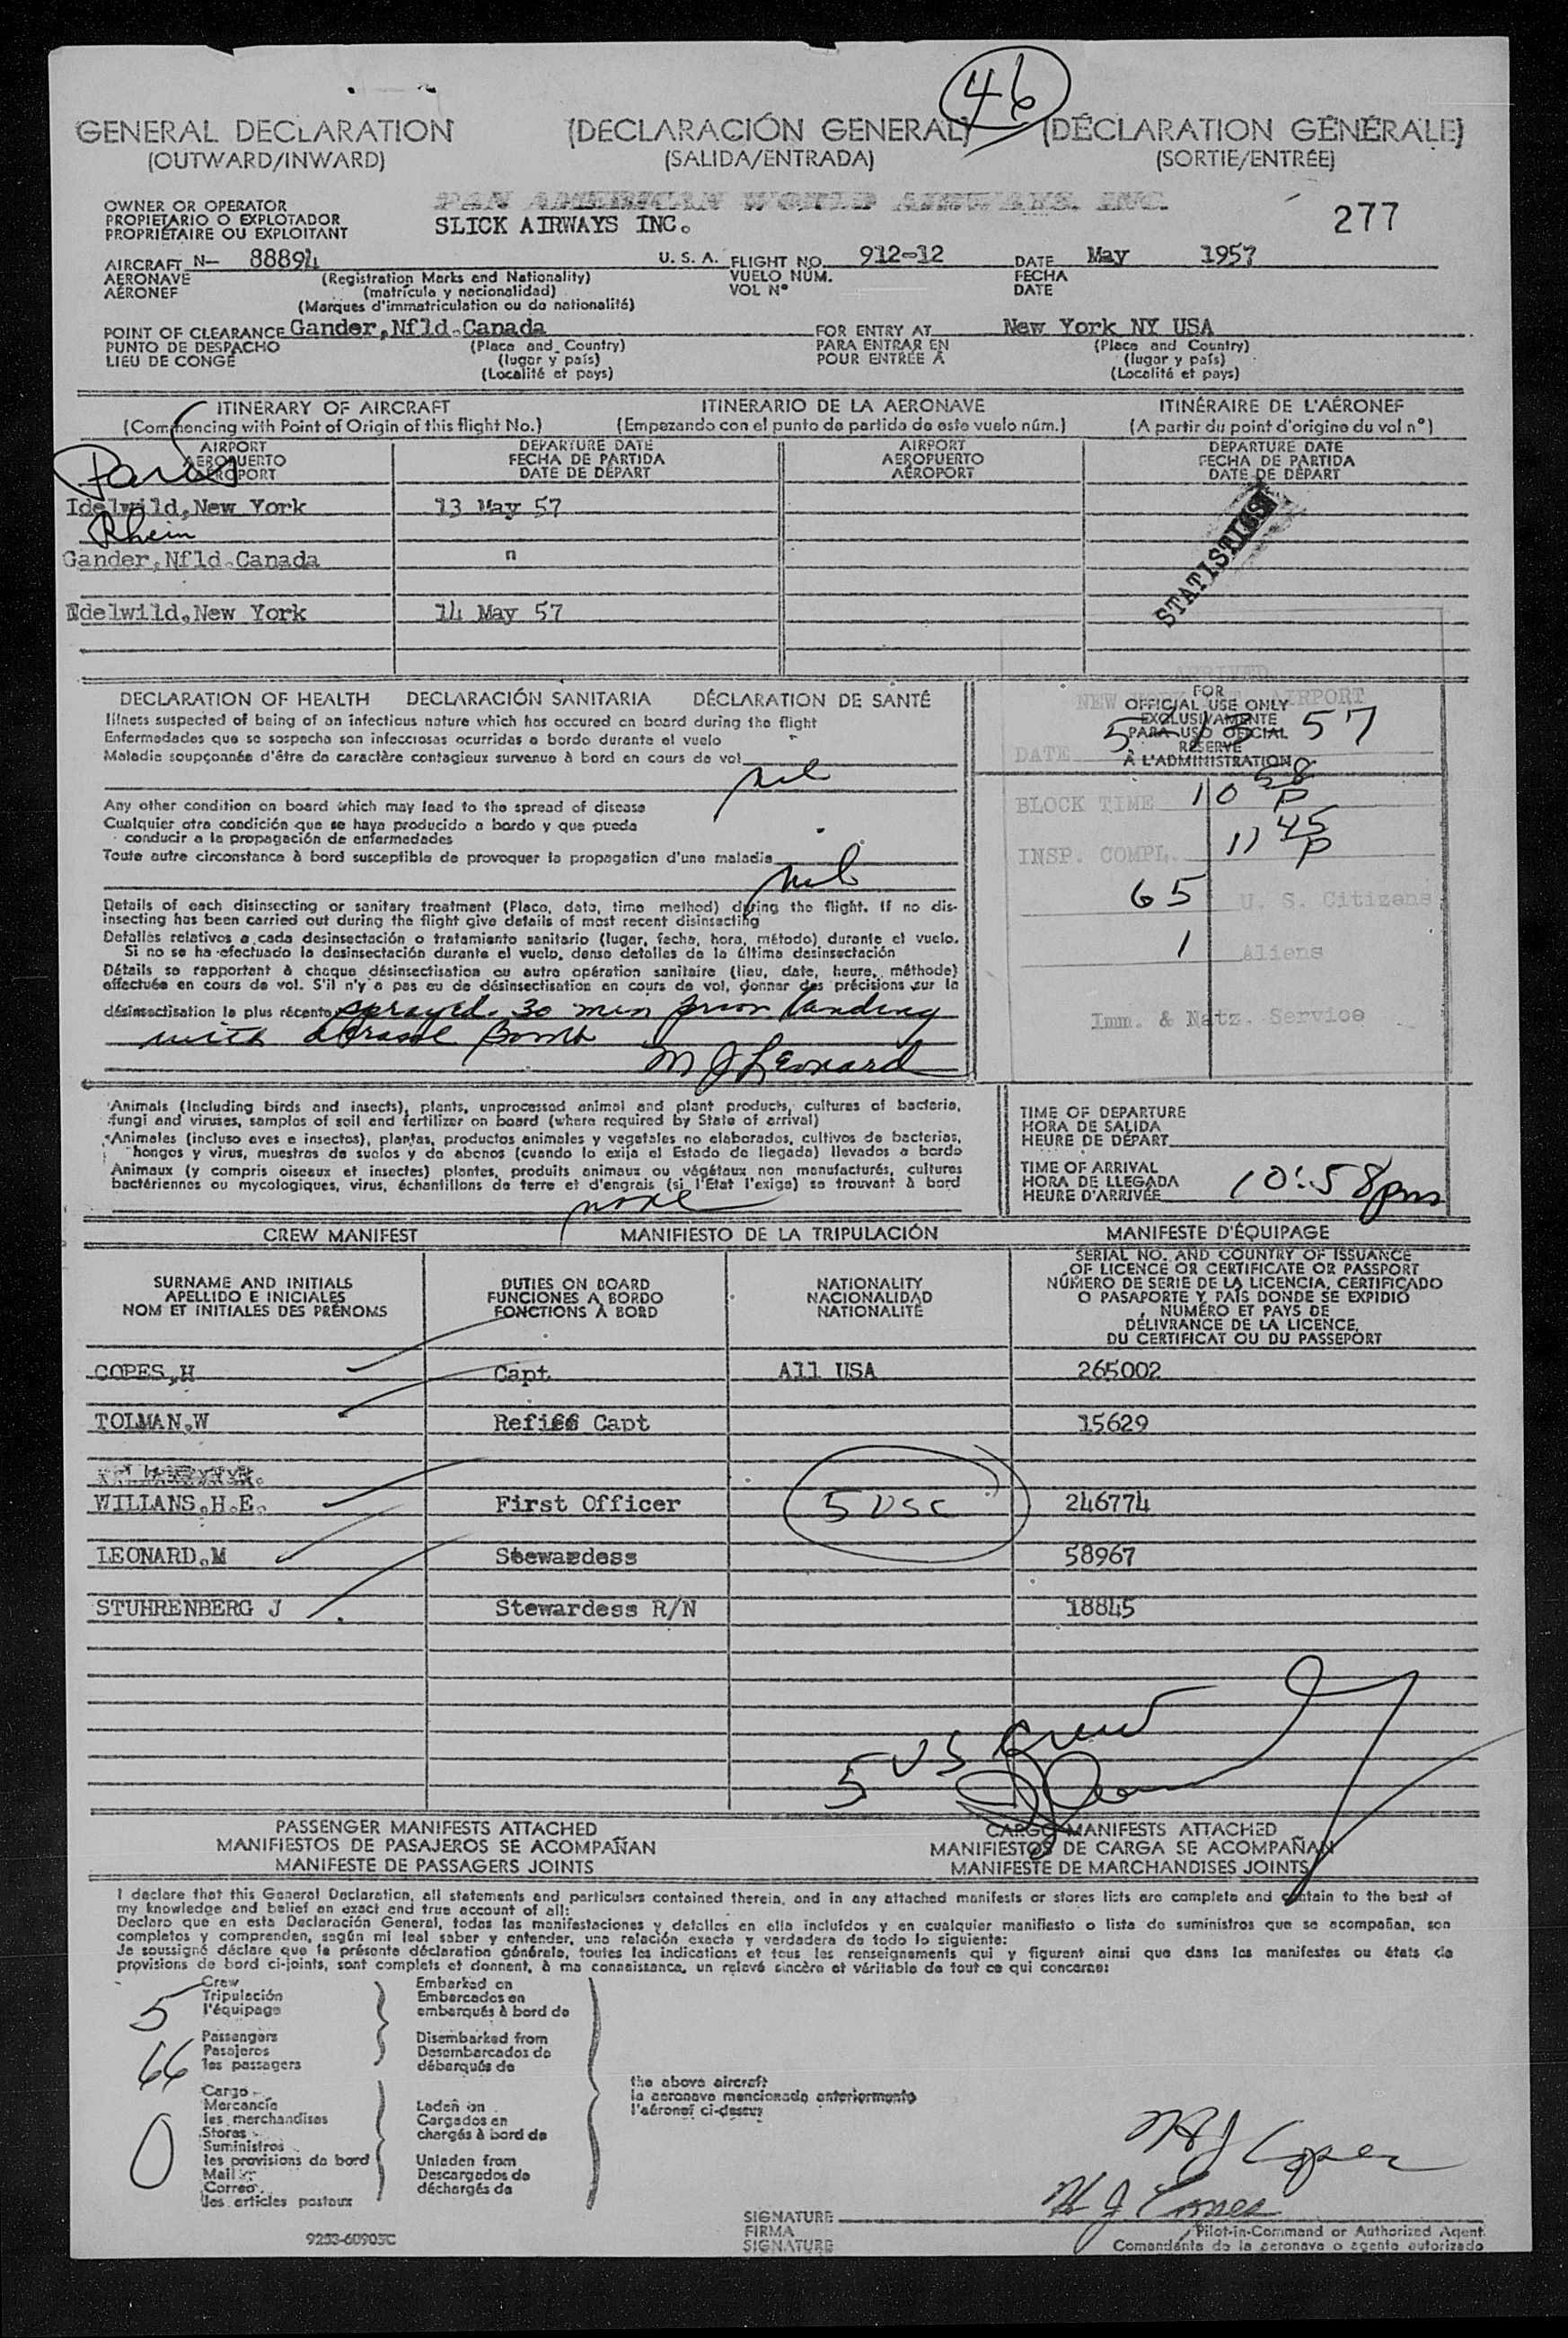 46
GENERAL DECLARATION (DECLARACIÓN GENERAL) (DÉCLARATION GÉNÉRALE)
(OUTWARD/INWARD) (SALIDA/ENTRADA) (SORTIE/ENTRÉE)
OWNER OR OPERATOR PAN AMERICAN WORLD AIRWAYS, INC.
PROPIETARIO O EXPLOTADOR SLICK AIRWAYS INC. 277
PROPRIÉTAIRE OU EXPLOITANT
AIRCRAFT N- 88894 U. S. A. FLIGHT NO. 912-12 DATE May 1957
AERONAVE (Registration Marks and Nationality) VUELO NÚM. FECHA
AÉRONEF (matrícula y nacionalidad) VOL N° DATE
(Marques d'immatriculation ou de nationalité)
POINT OF CLEARANCE Gander, Nfld. Canada FOR ENTRY AT New York NY USA
PUNTO DE DESPACHO (Place and Country) PARA ENTRAR EN (Place and Country)
LIEU DE CONGÉ (lugar y país) POUR ENTRÉE À (lugar y país)
(Localité et pays) (Localité et pays)
ITINERARY OF AIRCRAFT ITINERARIO DE LA AERONAVE ITINÉRAIRE DE L'AÉRONEF
(Commencing with Point of Origin of this flight No.) (Empezando con el punto de partida de este vuelo núm.) (A partir du point d'origine du vol n°)
AIRPORT DEPARTURE DATE AIRPORT DEPARTURE DATE
AEROPUERTO FECHA DE PARTIDA AEROPUERTO FECHA DE PARTIDA
AÉROPORT DATE DE DÉPART AÉROPORT DATE DE DÉPART
Paris
Idelwild, New York 13 May 57
Rhein
Gander, Nfld. Canada "
STATISTICS
Idelwild, New York 14 May 57
DECLARATION OF HEALTH DECLARACIÓN SANITARIA DÉCLARATION DE SANTÉ
Illness suspected of being of an infectious nature which has occured on board during the flight
Enfermedades que se sospecha son infecciosas ocurridas a bordo durante el vuelo
Maladie soupçonnée d'être de caractère contagieux survenue à bord en cours de vol
nil
Any other condition on board which may lead to the spread of disease
Cualquier otra condición que se haya producido a bordo y que pueda
conducir a la propagación de enfermedades
Toute autre circonstance à bord susceptible de provoquer la propagation d'une maladie
nil
Details of each disinsecting or sanitary treatment (Place, date, time method) during the flight. If no dis-
insecting has been carried out during the flight give details of most recent disinsecting
Detalles relativos a cada desinsectación o tratamiento sanitario (lugar, fecha, hora, método) durante el vuelo.
Si no se ha efectuado la desinsectación durante el vuelo, dense detalles de la última desinsectación
Détails se rapportant à chaque désinsectisation ou autre opération sanitaire (lieu, date, heure, méthode)
effectuée en cours de vol. S'il n'y a pas eu de désinsectisation en cours de vol, donner des précisions sur la
désinsectisation la plus récente sprayed 30 min prior landing
with Bomb
M J Leonard
ARRIVED
NEW YORK INT. AIRPORT
FOR
OFFICIAL USE ONLY
EXCLUSIVAMENTE
PARA USO OFICIAL
RÉSERVÉ
À L'ADMINISTRATION
DATE 5 13 57
BLOCK TIME 10 58 P
INSP. COMPL. 11 45 P
65 U. S. Citizens
1 Aliens
Imm. & Natz. Service
Animals (Including birds and insects), plants, unprocessed animal and plant products, cultures of bacteria,
fungi and viruses, samples of soil and fertilizer on board (where required by State of arrival)
Animales (incluso aves e insectos), plantas, productos animales y vegetales no elaborados, cultivos de bacterias,
hongos y virus, muestras de suelos y de abonos (cuando lo exija el Estado de llegada) llevados a bordo
Animaux (y compris oiseaux et insectes) plantes, produits animaux ou végétaux non manufacturés, cultures
bactériennes ou mycologiques, virus, échantillons de terre et d'engrais (si l'État l'exige) se trouvant à bord
none
TIME OF DEPARTURE
HORA DE SALIDA
HEURE DE DÉPART
TIME OF ARRIVAL
HORA DE LLEGADA
HEURE D'ARRIVÉE 10:58pm
CREW MANIFEST MANIFIESTO DE LA TRIPULACIÓN MANIFESTE D'ÉQUIPAGE
SURNAME AND INITIALS DUTIES ON BOARD NATIONALITY SERIAL NO. AND COUNTRY OF ISSUANCE
APELLIDO E INICIALES FUNCIONES A BORDO NACIONALIDAD OF LICENCE OR CERTIFICATE OR PASSPORT
NOM ET INITIALES DES PRÉNOMS FONCTIONS À BORD NATIONALITÉ NÚMERO DE SERIE DE LA LICENCIA, CERTIFICADO
O PASAPORTE Y PAÍS DONDE SE EXPIDIÓ
NUMÉRO ET PAYS DE
DÉLIVRANCE DE LA LICENCE,
DU CERTIFICAT OU DU PASSEPORT
COPES, H Capt All USA 265002
TOLMAN, W Capt 15629
WILLANS, H.E. First Officer 5 USC 246774
LEONARD, M Stewardess 58967
STUHRENBERG J Stewardess R/N 18845
5 US Crew
PASSENGER MANIFESTS ATTACHED CARGO MANIFESTS ATTACHED
MANIFIESTOS DE PASAJEROS SE ACOMPAÑAN MANIFIESTOS DE CARGA SE ACOMPAÑAN
MANIFESTE DE PASSAGERS JOINTS MANIFESTE DE MARCHANDISES JOINTS
I declare that this General Declaration, all statements and particulars contained therein, and in any attached manifests or stores lists are complete and contain to the best of
my knowledge and belief an exact and true account of all:
Declaro que en esta Declaración General, todas las manifestaciones y detalles en ella incluídos y en cualquier manifiesto o lista de suministros que se acompañan, son
completos y comprenden, según mi leal saber y entender, una relación exacta y verdadera de todo lo siguiente:
Je soussigné déclare que la présente déclaration générale, toutes les indications et tous les renseignements qui y figurent ainsi que dans les manifestes ou états de
provisions de bord ci-joints, sont complets et donnent, à ma connaissance, un relevé sincère et véritable de tout ce qui concerne:
5 Crew Embarked on
Tripulación Embarcados en
l'équipage embarqués à bord de
66 Passengers Disembarked from
Pasajeros Desembarcados de
les passagers débarqués de
the above aircraft
la aeronave mencionada anteriormente
l'aéronef ci-dessus
0 Cargo Laden on
Mercancía Cargados en
les merchandises chargés à bord de
Stores
Suministros Unladen from
les provisions de bord Descargados de
Mail déchargés de
Correo
les articles postaux
9253-60905C
H J Copes
H J Copes
SIGNATURE
FIRMA Pilot-in-Command or Authorized Agent
SIGNATURE Comandante de la aeronave o agente autorizado